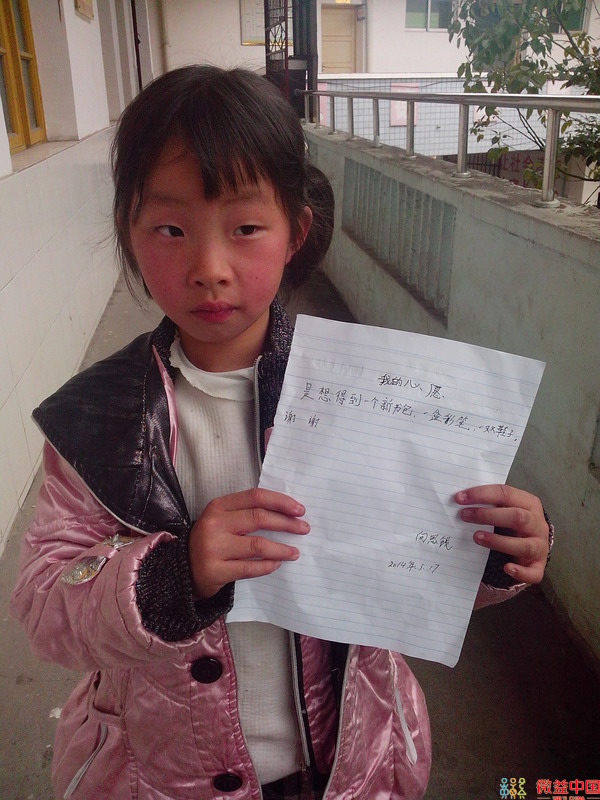 我的心愿、
是想得到一个新书包、一盒彩笔、一双鞋子。
谢谢
向思
2014年
社会
微益中国